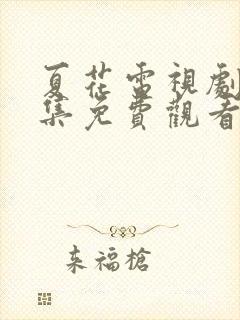 夏花電視劇
集免費觀看
来福槍